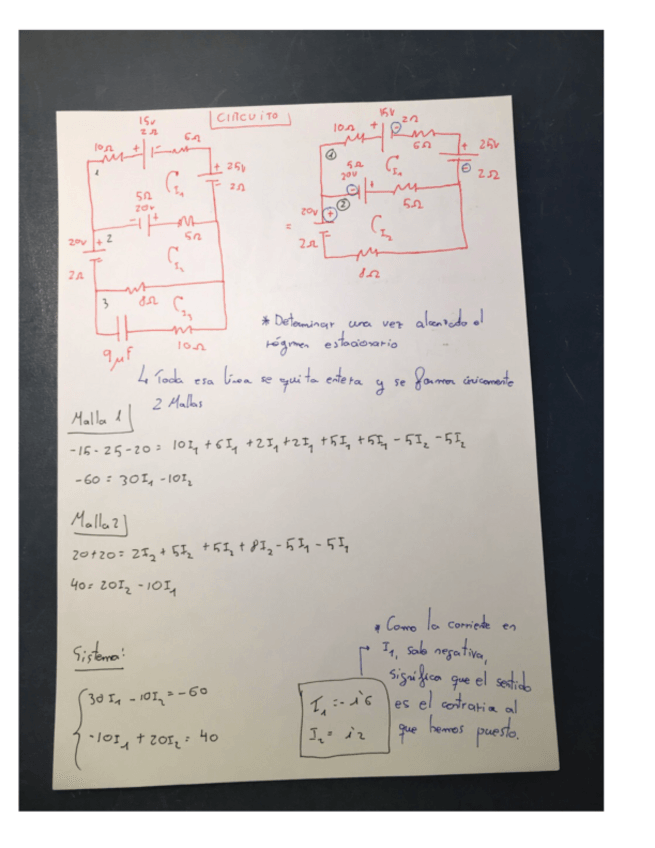 CIRCUITO
15v
2Ω
10Ω + - 6Ω
1
I1
+ 25v
- 2Ω
5Ω
20v
- +
5Ω
20v + 2
2Ω -
I2
3
8Ω
I3
9μF
10Ω
=
15v
10Ω + - 2Ω
6Ω
1
I1
+ 25v
- 2Ω
5Ω
20v
- +
5Ω
2
20v +
2Ω -
I2
8Ω
* Determinar una vez alcanzado el
régimen estacionario
↳ Toda esa línea se quita entera y se forman únicamente
2 Mallas
Malla 1
-15-25-20 = 10I1 + 6I1 + 2I1 + 2I1 + 5I1 + 5I1 - 5I2 - 5I2
-60 = 30I1 - 10I2
Malla 2
20+20 = 2I2 + 5I2 + 5I2 + 8I2 - 5I1 - 5I1
40 = 20I2 - 10I1
Sistema:
30I1 - 10I2 = -60
-10I1 + 20I2 = 40
I1 = -1'6
I2 = 1'2
* Como la corriente en
I1, sale negativa,
significa que el sentido
es el contrario al
que hemos puesto.